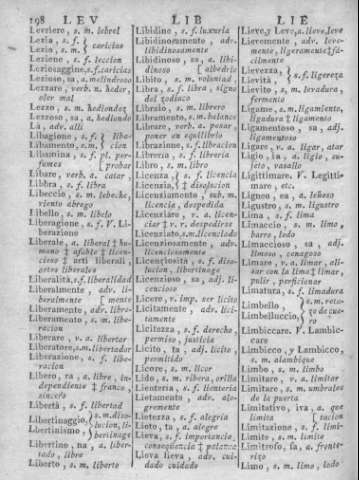 198 LEV LIB LIE
Lerciero, s. m. lebrel
Lezia, s. f.
Lezio, s. m. caricias
Leziene, s. f. leccion
Leziosaggine, s. f. caricias
Lezioso, sa, a. melindroso
Lezzare, verb. n. heder,
oler mal
Lezzo, s. m. hediondez
Lezzoso, sa, a. hediondo
Là, adv. allí
Libagione, s. f. liba-
Libamento, s. m. cion
Libamina, s. f. pl. per-
fumes [ probar
Libare, verb. a. catar,
Libbra, s. f. libra
Libeccio, s. m. lebeche,
viento abrego
Libello, s. m. libelo
Liberagione, s. f. V. Li-
berazione
Liberale, a. liberal ‡ hu-
mano ‡ afable ‡ licen-
cioso ‡ arti liberali,
artes liberales
Liberalità, s. f. liberalidad
Liberalmente, adv. li-
beralmente [ mente
Liberamente, adv. libra-
Liberamento, s. m. libe-
racion
Liberare, v. a. libertar
Liberatore, s. m. libertador
Liberazione, s. f. libe-
racion
Libero, ra, a. libre, in-
dependiente ‡ franco,
sincero
Libertà, s. f. libertad
Libertinaggio, s. m. diso-
lucion, li-
Libertinismo, bertinage
Libertino, na, a. liber-
tado, libre
Liberto, s. m. liberto
Libidine, s. f. luxuria
Libidinosamente, adv.
libidinosamente
Libidinoso, sa, a. libi-
dinoso [ albedrio
Libito, s. m. voluntad,
Libra, s. f. libra, signo
del zodiaco
Libraio, s. m. librero
Libramento, s. m. balance
Librare, verb. a. pesar,
poner en equilibrio
Librazione, s. f. libracion
Libreria, s. f. libreria
Libro, s. m. libro
Licenza, s. f. licencia
Licenzia, ‡ disolucion
Licenziamento, sub. m.
licencia, despedida
Licenziare, v. a. licen-
ciar ‡ v. r. despedirse
Licenziato, s. m. licenciado
Licenziosamente, adv.
licenciosamente
Licenziosità, s. f. diso-
lucion, libertinage
Licenzioso, sa, adj. li-
cencioso
Licere, v. imp. ser licito
Licitamente, adv. lici-
tamente
Licitezza, s. f. derecho,
permiso, justicia
Licito, ta, adj. licito
permitido
Licore, s. m. licor
Lido, s. m. ribera, orilla
Lienteria, s. f. lienteria
Lietamente, adv. ale-
gremente
Lietezza, s. f. alegria
Lieto, ta, a. alegre
Lieva, s. f. importancia,
conseqüencia ‡ palanca
Lieva lieva, adv. cui-
dado cuidado
Lieve, y Leve, a. lieve, leve
Lievemente, adv. leve-
mente, ligeramente ‡ fá-
cilmente
Lievezza,
Lievità, s. f. ligereza
Lievito, s. m. levadura,
fermento
Ligame, s. m. ligamiento,
ligadura ‡ ligamento
Ligamentoso, sa, adj.
ligamentoso
Ligare, v. a. ligar, atar
Ligio, ia, a. ligio, su-
jeto, vasallo
Ligittimare. V. Legitti-
mare, etc.
Ligneo, ea, a. leñoso
Ligustro, s. m. ligustro
Lima, s. f. lima
Limaccio, s. m. limo,
barro, lodo
Limaccioso, sa, adj.
limoso, cenagoso
Limare, v. a. limar, ali-
sar con la lima ‡ limar
pulir, perficionar
Limatura, s. f. limadura
Limbello, s. m. reto-
zo de cue-
Limbelluccio, ro
Limbiccare. V. Lambic-
care
Limbicco, y Lambicco,
s. m. alambique
Limbo, s. m. limbo
Limitare, v. a. limitar
Limitare, s. m. umbrales
de la puerta
Limitativo, iva, a. que
limita [ cion
Limitazione, s. f. limi-
Limite, s. m. limite
Limitrofo, fa, a. fronte-
rizo
Limo, s. m. limo, lodo